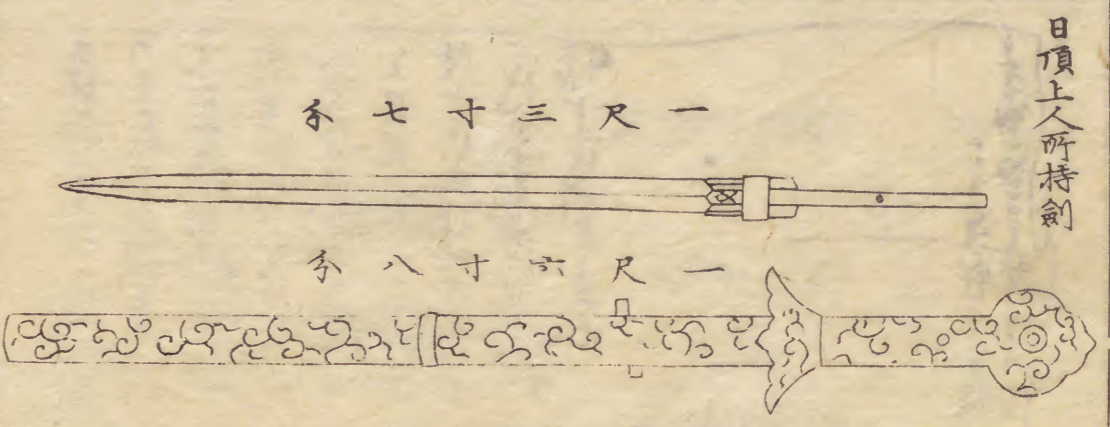 日頂上人所持劔
一尺三寸七分
一尺六寸八分